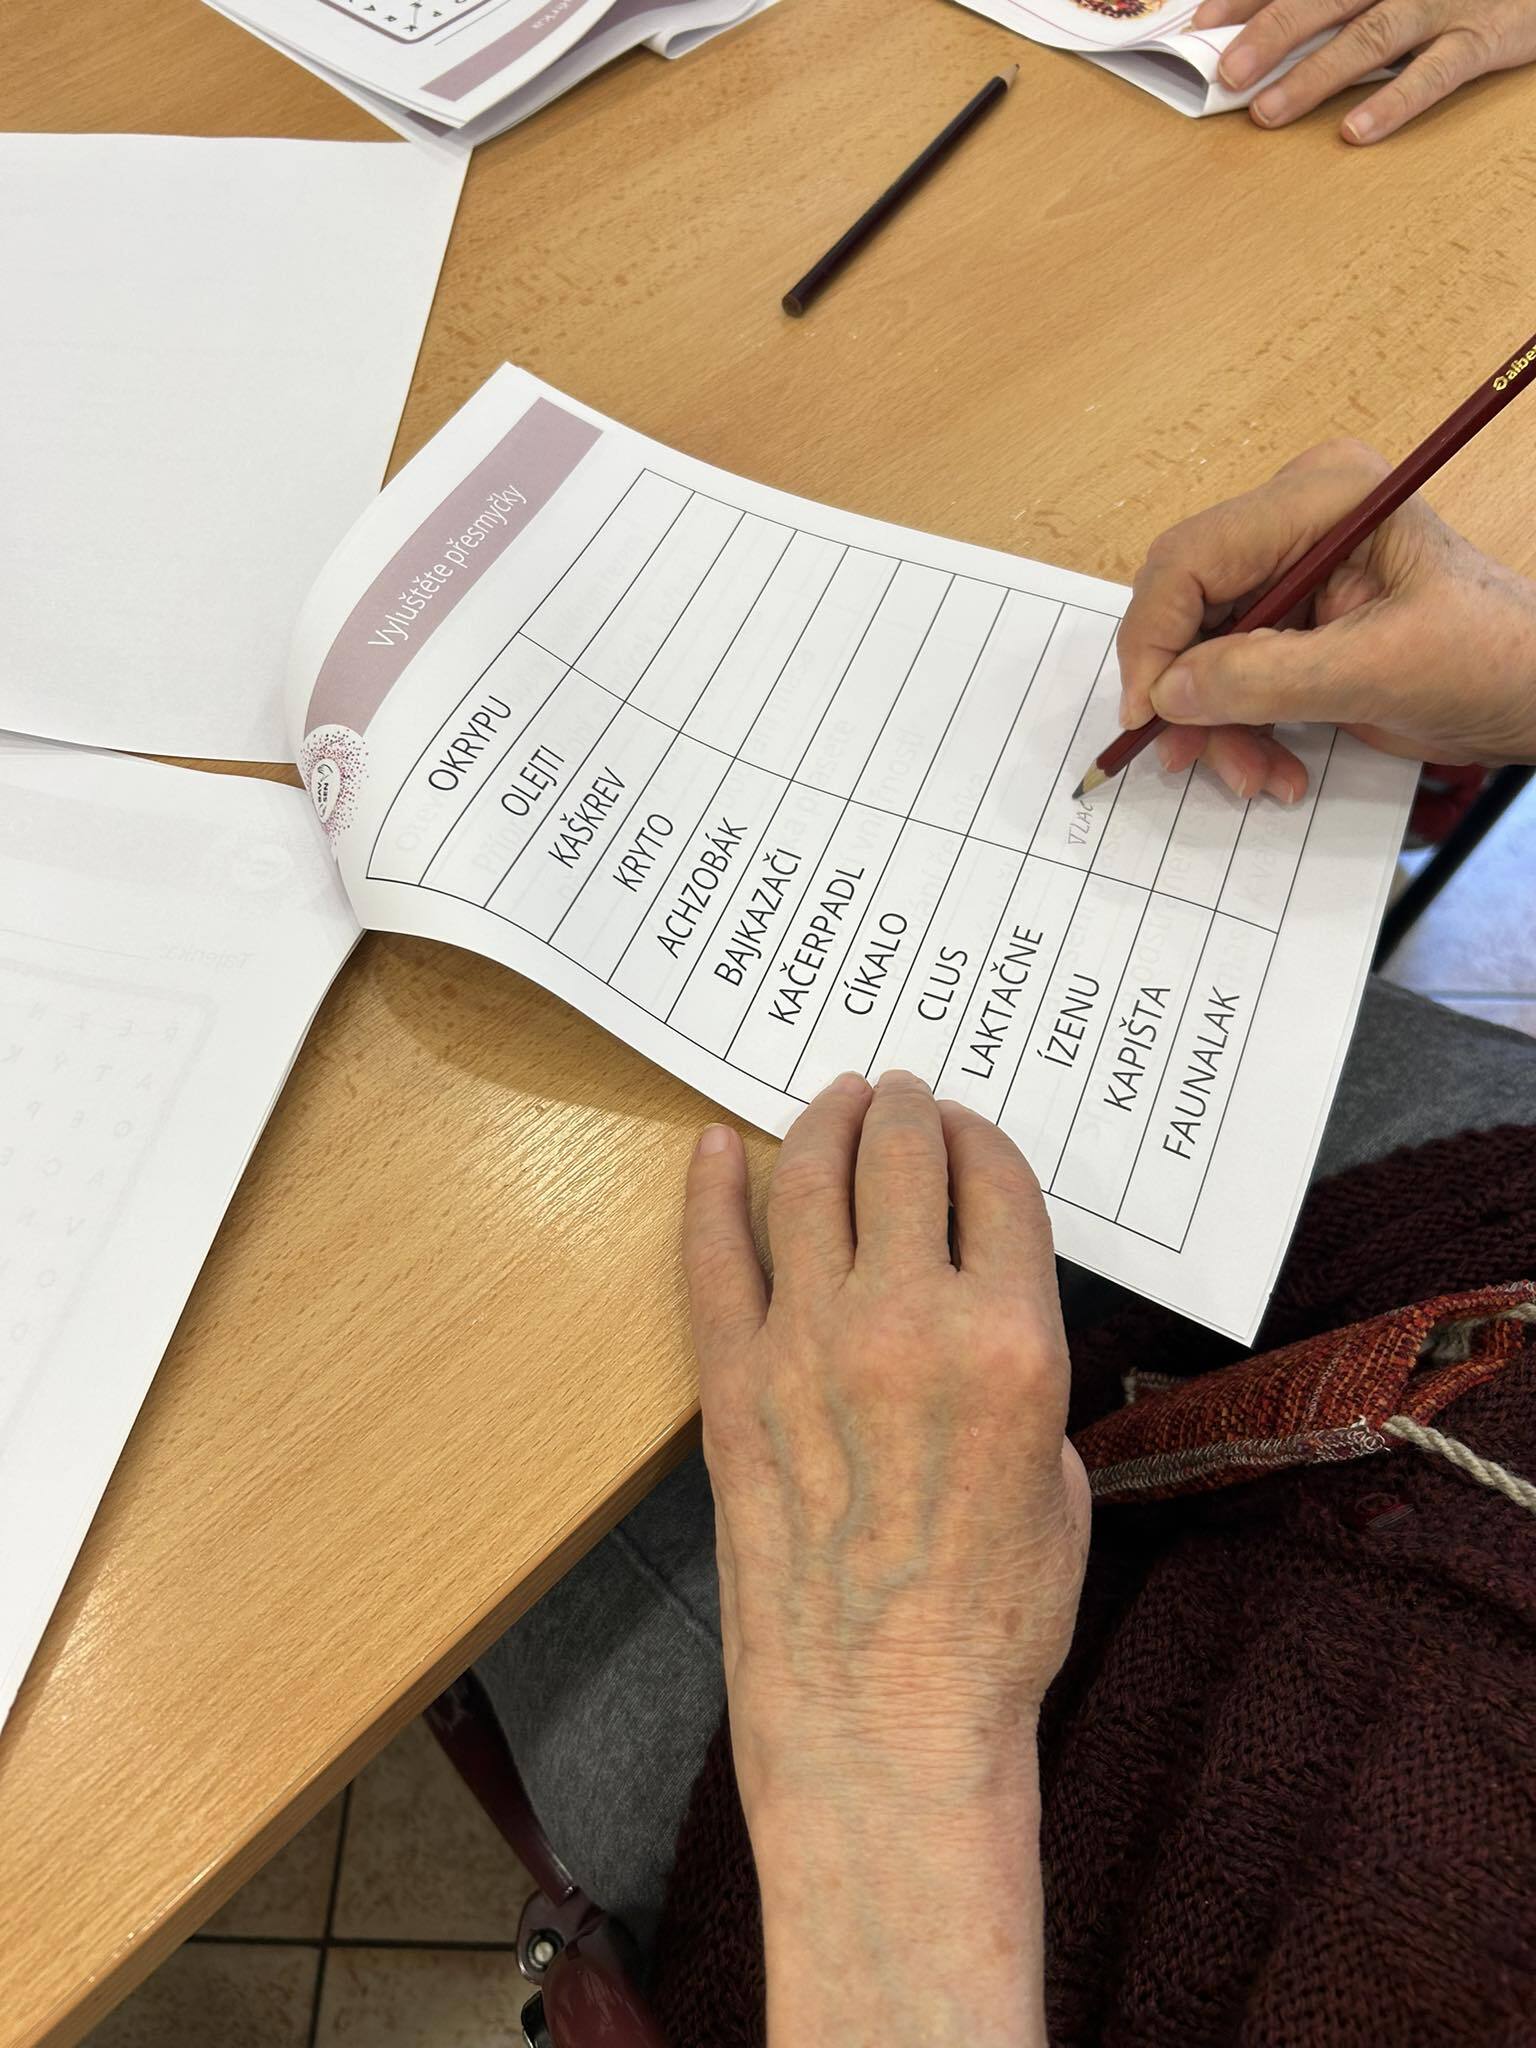 Vyluštěte přesmyčky
OKRYPU
OLEJTI
KAŠKREV
KRYTO
ACHZOBÁK
BAJKAZAČI
KAČERPADL
CÍKALO
CLUS
LAKTAČNE
TLAČ
ÍZENU
KAPIŠTA
FAUNALAK